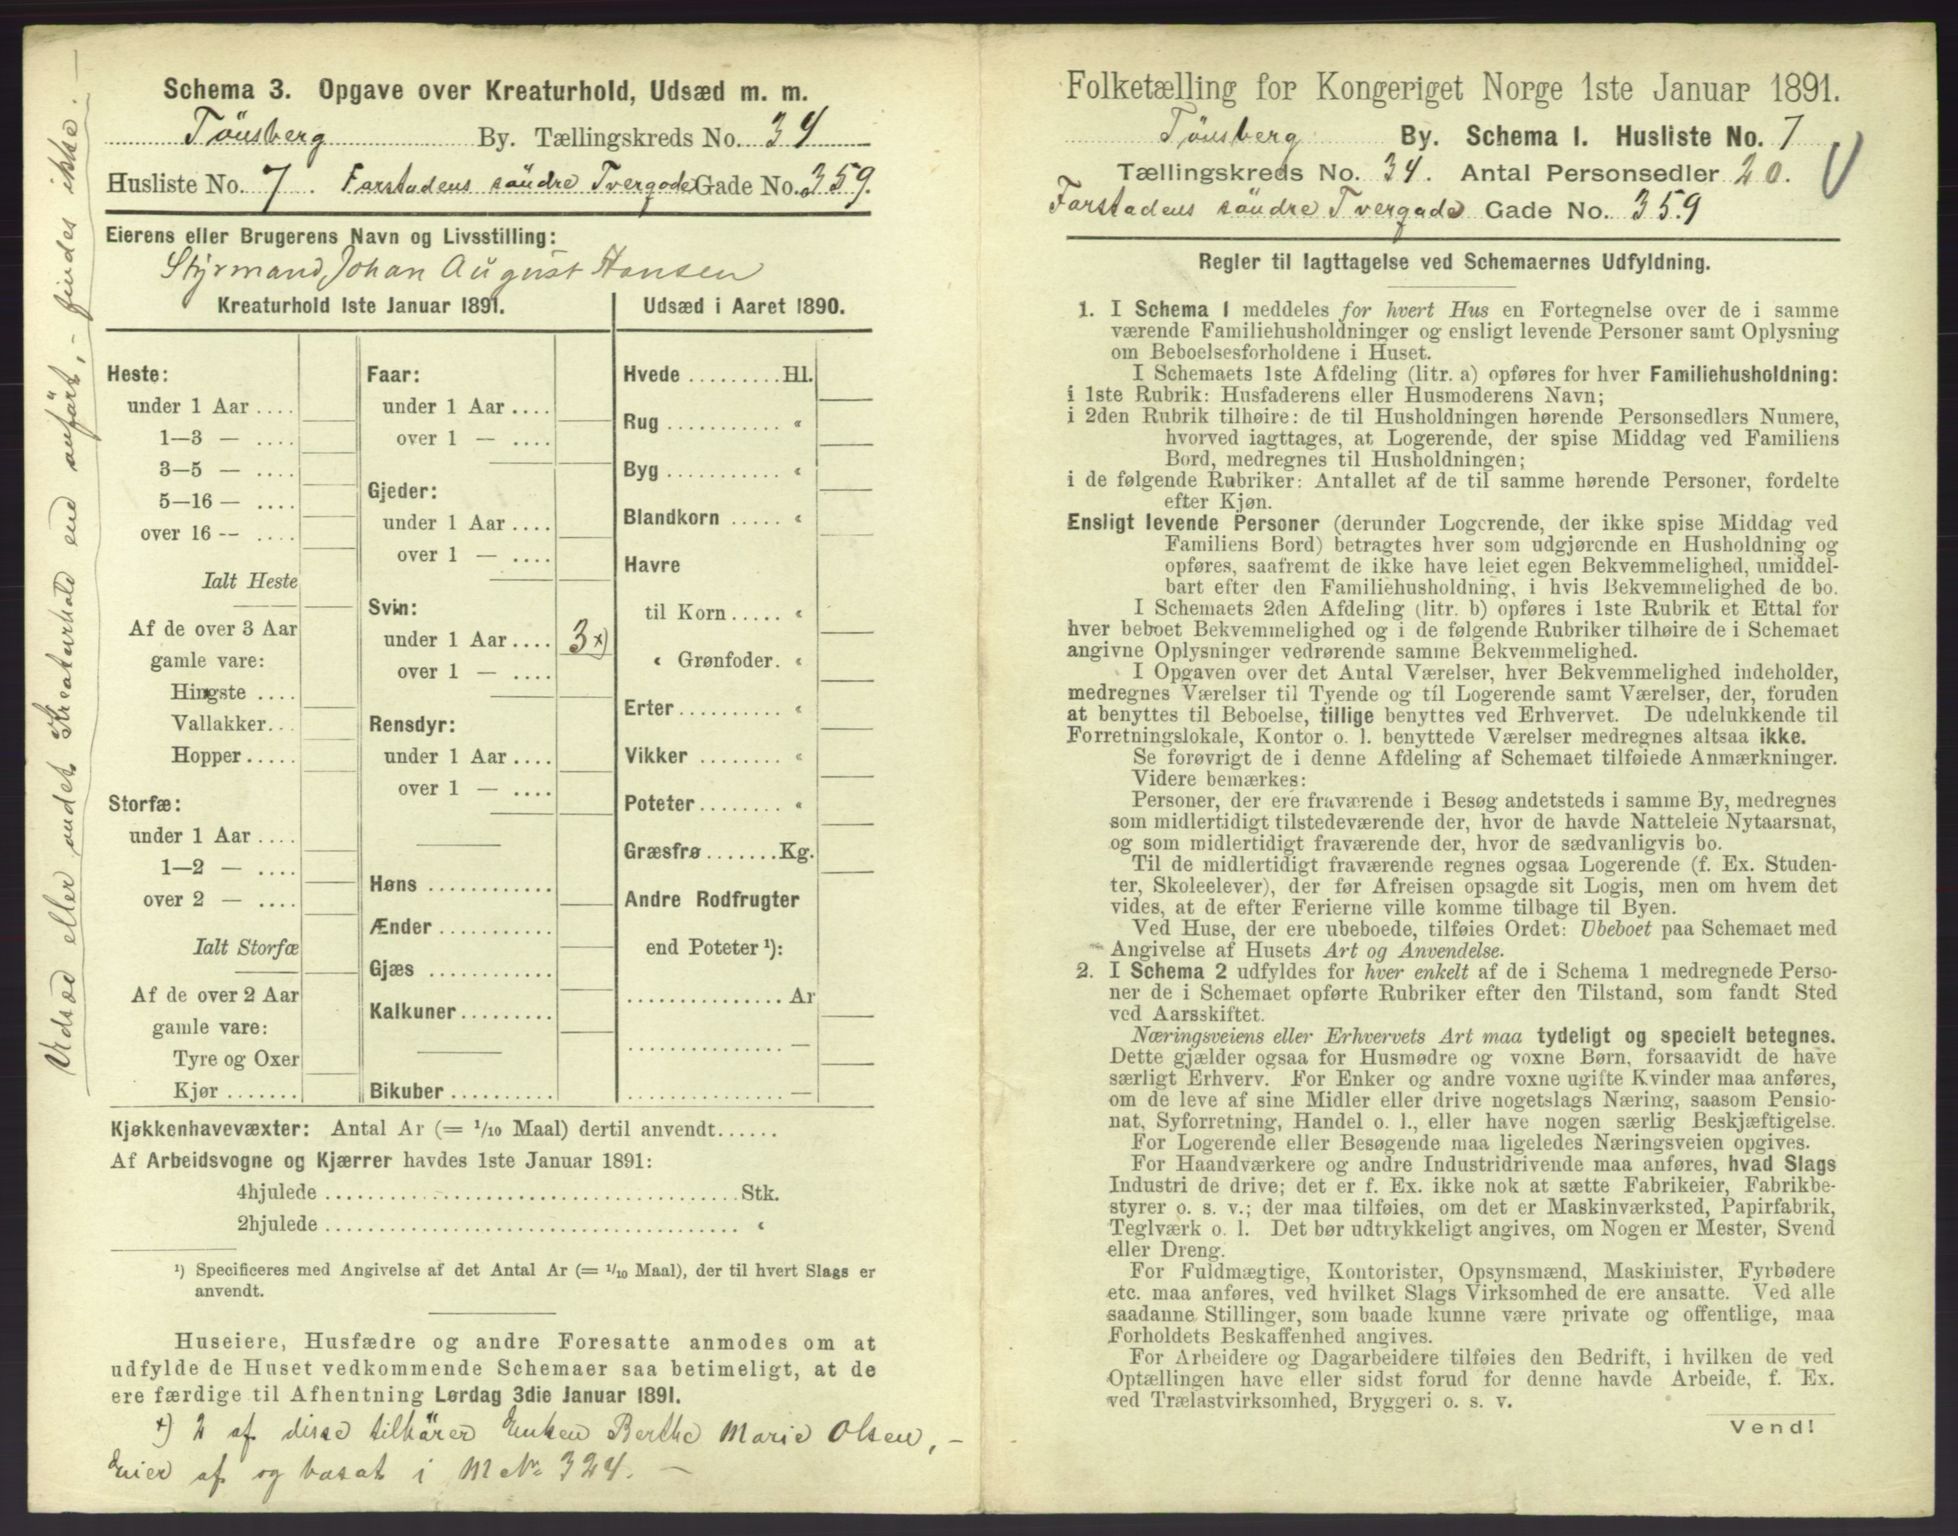 Schema 3. Opgave over Kreaturhold, Udsæd m. m.
Tönsberg By. Tællingskreds No. 34
Husliste No. 7. Farstadens söndre Tvergade Gade No. 359.
Eierens eller Brugerens Navn og Livsstilling:
Styrmand, Johan August Hansen
Kreaturhold 1ste Januar 1891.
Heste:
under 1 Aar ....
1—3 — ....
3—5 — ....
5—16 — ....
over 16 -- ....
Ialt Heste
Af de over 3 Aar
gamle vare:
Hingste ....
Vallakker...
Hopper.....
Storfæ:
under 1 Aar ....
1—2 — ....
over 2 — ....
Ialt Storfæ
Af de over 2 Aar
gamle vare:
Tyre og Oxer
Kjør .......
Faar:
under 1 Aar ....
over 1 — ....
Gjeder:
under 1 Aar ....
over 1 — ....
Svin:
under 1 Aar .... 3 x)
over 1 — ....
Rensdyr:
under 1 Aar ....
over 1 — ....
Høns ............
Ænder...........
Gjæs ............
Kalkuner.........
Bikuber ..........
Udsæd i Aaret 1890.
Hvede .........Hl.
Rug ........... «
Byg ........... «
Blandkorn ..... «
Havre
til Korn..... «
« Grønfoder. «
Erter.......... «
Vikker ........ «
Poteter........ «
Græsfrø.......Kg.
Andre Rodfrugter
end Poteter ¹):
............... Ar
............... —
............... —
Kjøkkenhavevæxter: Antal Ar (= 1/10 Maal) dertil anvendt......
Af Arbeidsvogne og Kjærrer havdes 1ste Januar 1891:
4hjulede ........................................Stk.
2hjulede ........................................ «
¹) Specificeres med Angivelse af det Antal Ar (= 1/10 Maal), der til hvert Slags er
anvendt.
Huseiere, Husfædre og andre Foresatte anmodes om at
udfylde de Huset vedkommende Schemaer saa betimeligt, at de
ere færdige til Afhentning Lørdag 3die Januar 1891.
x) 2 af disse tilhörer Enken Berthe Marie Olsen, –
Eier af og bosat i M.Nr. 324. –
Udsæd eller andet Kreaturhold end anfört, – findes ikke. –
Folketælling for Kongeriget Norge 1ste Januar 1891.
Tönsberg By. Schema I. Husliste No. 7
Tællingskreds No. 34. Antal Personsedler 20.
Farstadens söndre Tvergade Gade No. 359
Regler til Iagttagelse ved Schemaernes Udfyldning.
1. I Schema 1 meddeles for hvert Hus en Fortegnelse over de i samme
værende Familiehusholdninger og ensligt levende Personer samt Oplysning
om Beboelsesforholdene i Huset.
I Schemaets 1ste Afdeling (litr. a) opføres for hver Familiehusholdning:
i 1ste Rubrik: Husfaderens eller Husmoderens Navn;
i 2den Rubrik tilhøire: de til Husholdningen hørende Personsedlers Numere,
hvorved iagttages, at Logerende, der spise Middag ved Familiens
Bord, medregnes til Husholdningen;
i de følgende Rubriker: Antallet af de til samme hørende Personer, fordelte
efter Kjøn.
Ensligt levende Personer (derunder Logerende, der ikke spise Middag ved
Familiens Bord) betragtes hver som udgjørende en Husholdning og
opføres, saafremt de ikke have leiet egen Bekvemmelighed, umiddel-
bart efter den Familiehusholdning, i hvis Bekvemmelighed de bo.
I Schemaets 2den Afdeling (litr. b) opføres i 1ste Rubrik et Ettal for
hver beboet Bekvemmelighed og i de følgende Rubriker tilhøire de i Schemaet
angivne Oplysninger vedrørende samme Bekvemmelighed.
I Opgaven over det Antal Værelser, hver Bekvemmelighed indeholder,
medregnes Værelser til Tyende og til Logerende samt Værelser, der, foruden
at benyttes til Beboelse, tillige benyttes ved Erhvervet. De udelukkende til
Forretningslokale, Kontor o. l. benyttede Værelser medregnes altsaa ikke.
Se forøvrigt de i denne Afdeling af Schemaet tilføiede Anmærkninger.
Videre bemærkes:
Personer, der ere fraværende i Besøg andetsteds i samme By, medregnes
som midlertidigt tilstedeværende der, hvor de havde Natteleie Nytaarsnat,
og som midlertidigt fraværende der, hvor de sædvanligvis bo.
Til de midlertidigt fraværende regnes ogsaa Logerende (f. Ex. Studen-
ter, Skoleelever), der før Afreisen opsagde sit Logis, men om hvem det
vides, at de efter Ferierne ville komme tilbage til Byen.
Ved Huse, der ere ubeboede, tilføies Ordet: Ubeboet paa Schemaet med
Angivelse af Husets Art og Anvendelse.
2. I Schema 2 udfyldes for hver enkelt af de i Schema 1 medregnede Perso-
ner de i Schemaet opførte Rubriker efter den Tilstand, som fandt Sted
ved Aarsskiftet.
Næringsveiens eller Erhvervets Art maa tydeligt og specielt betegnes.
Dette gjælder ogsaa for Husmødre og voxne Børn, forsaavidt de have
særligt Erhverv. For Enker og andre voxne ugifte Kvinder maa anføres,
om de leve af sine Midler eller drive nogetslags Næring, saasom Pensio-
nat, Syforretning, Handel o. l., eller have nogen særlig Beskjæftigelse.
For Logerende eller Besøgende maa ligeledes Næringsveien opgives.
For Haandværkere og andre Industridrivende maa anføres, hvad Slags
Industri de drive; det er f. Ex. ikke nok at sætte Fabrikeier, Fabrikbe-
styrer o. s. v.; der maa tilføies, om det er Maskinværksted, Papirfabrik,
Teglværk o. l. Det bør udtrykkeligt angives, om Nogen er Mester, Svend
eller Dreng.
For Fuldmægtige, Kontorister, Opsynsmænd, Maskinister, Fyrbødere
etc. maa anføres, ved hvilket Slags Virksomhed de ere ansatte. Ved alle
saadanne Stillinger, som baade kunne være private og offentlige, maa
Forholdets Beskaffenhed angives.
For Arbeidere og Dagarbeidere tilføies den Bedrift, i hvilken de ved
Optællingen have eller sidst forud for denne havde Arbeide, f. Ex.
ved Trælastvirksomhed, Bryggeri o. s. v.
Vend!